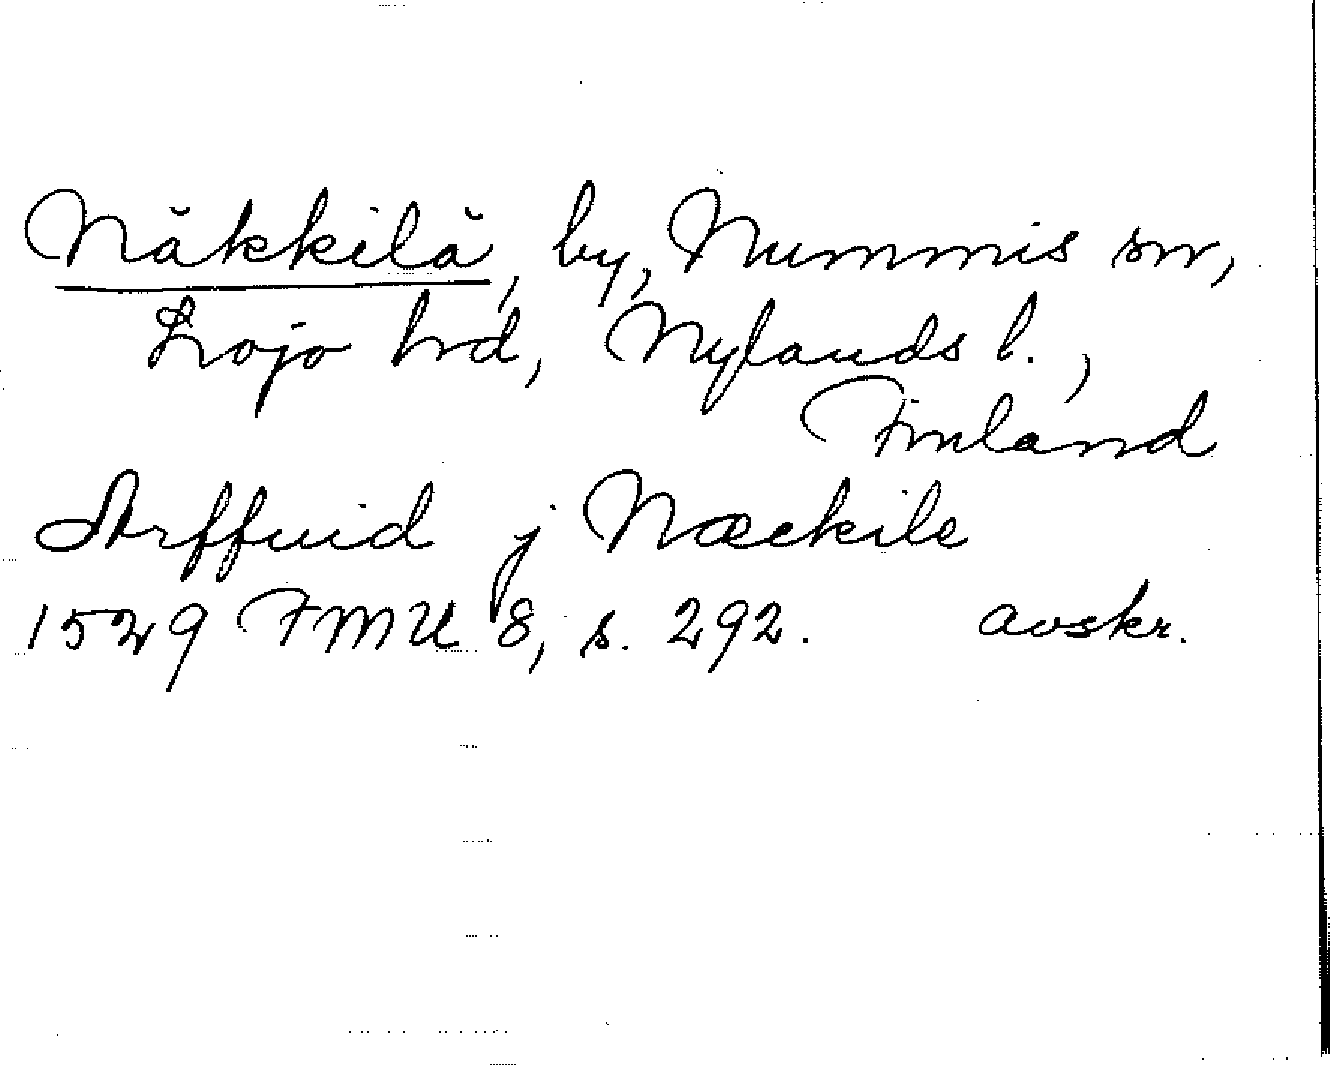 Näkkilä, by, Nummis sn,
Lojo hrd, Nylands l.,
Finland
Arffuid j Næckile
1529 FMU 8, s. 292. avskr.